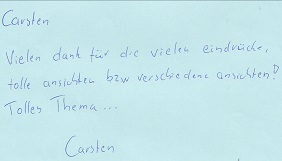 Carsten
Vielen dank für die vielen eindrücke,
tolle ansichten bzw verschiedene ansichten!
Tolles Thema...
Carsten